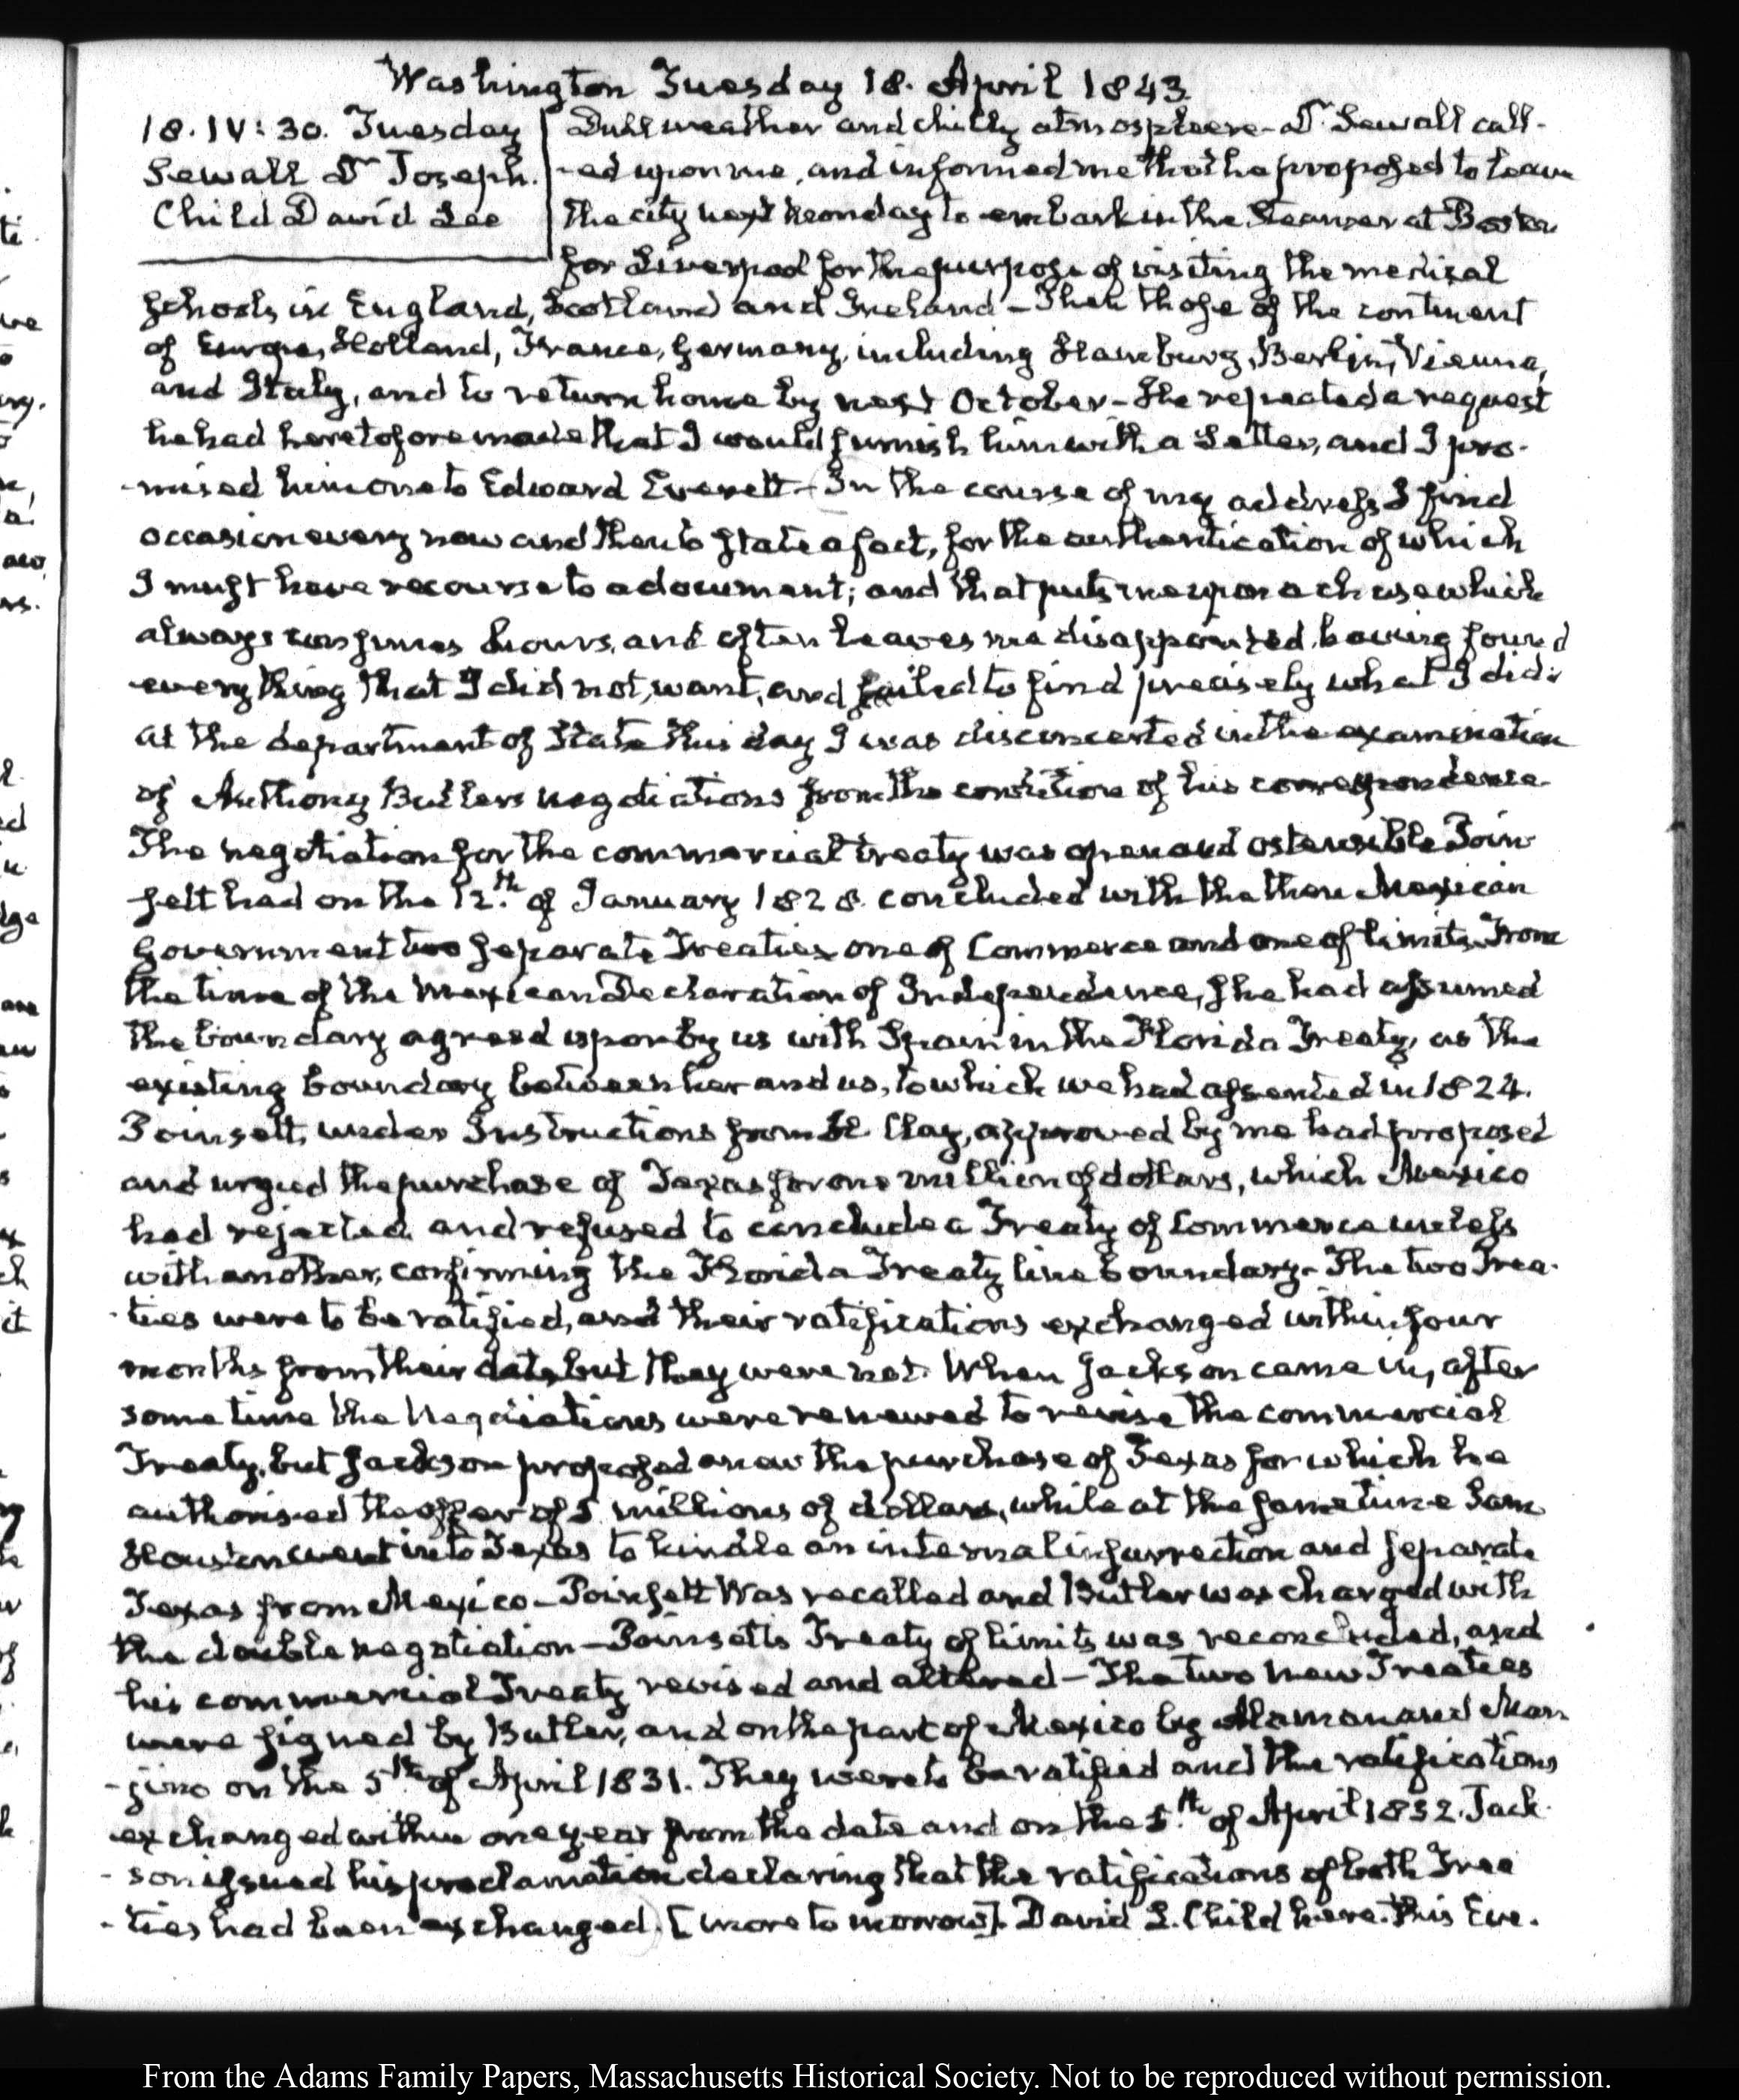 Washington Tuesday 18. April 1843.
18. IV: 30. Tuesday
Sewall Dr Joseph.
Child David Lee
Dull weather and chilly atmosphere - Dr Sewall call-
-ed upon me, and informed me that he proposed to leave
the city next Monday to embark in the Steamer at Boston
for Liverpool for the purpose of visiting the medical
schools in England, Scotland and Ireland - Then those of the continent
of Europe, Holland, France, Germany, including Hamburg, Berlin, Vienna,
and Italy, and to return home by next October - He repeated a request
he had heretofore made that I would furnish him with a Letter, and I pro-
-mised him one to Edward Everett - In the course of my address I find
occasion every now and then to state a fact, for the authentication of which
I must have recourse to a document; and that puts me upon a chase which
always consumes hours, and often leaves me disappointed, having found
every thing that I did not want, and failed to find precisely what I did.
At the department of State this day I was disconcerted in the examination
of Anthony Butler's negotiations from the condition of his correspondence.
The negotiation for the commercial treaty was open and ostensible Poin-
sett had on the 12.th of January 1828. concluded with the then Mexican
Government two separate Treaties one of Commerce and one of limits. From
the time of the Mexican Declaration of Independence, she had assumed
the boundary agreed upon by us with Spain in the Florida Treaty, as the
existing boundary between her and us, to which we had assented in 1824.
Poinsett, under Instructions from H. Clay, approved by me had proposed
and urged the purchase of Texas for one million of dollars, which Mexico
had rejected and refused to conclude a Treaty of Commerce unless
with another, confirming the Florida Treaty line boundary - The two Trea-
-ties were to be ratified, and their ratifications exchanged within four
months from their date, but they were not. When Jackson came in, after
some time the Negotiations were renewed to revise the commercial
Treaty, but Jackson proposed anew the purchase of Texas for which he
authorised the offer of 5 millions of dollars, while at the same time Sam
Houston went into Texas to kindle an internal insurrection and separate
Texas from Mexico - Poinsett was recalled and Butler was charged with
the double negotiation - Poinsett's Treaty of limits was reconcluded, and
his commercial Treaty revised and altered - The two new Treaties
were signed by Butler, and on the part of Mexico by Alaman and Man
-gino on the 5th of April 1831. They were to be ratified and the ratifications
exchanged within one year from the date and on the 5.th of April 1832. Jack-
-son issued his proclamation declaring that the ratifications of both Trea
-ties had been exchanged. [more to morrow]. David L. Child here this Eve.
From the Adams Family Papers, Massachusetts Historical Society. Not to be reproduced without permission.